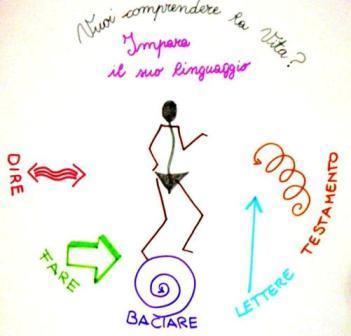 Vuoi comprendere la Vita?
Impara
il suo linguaggio
DIRE
FARE
BACIARE
LETTERE
TESTAMENTO